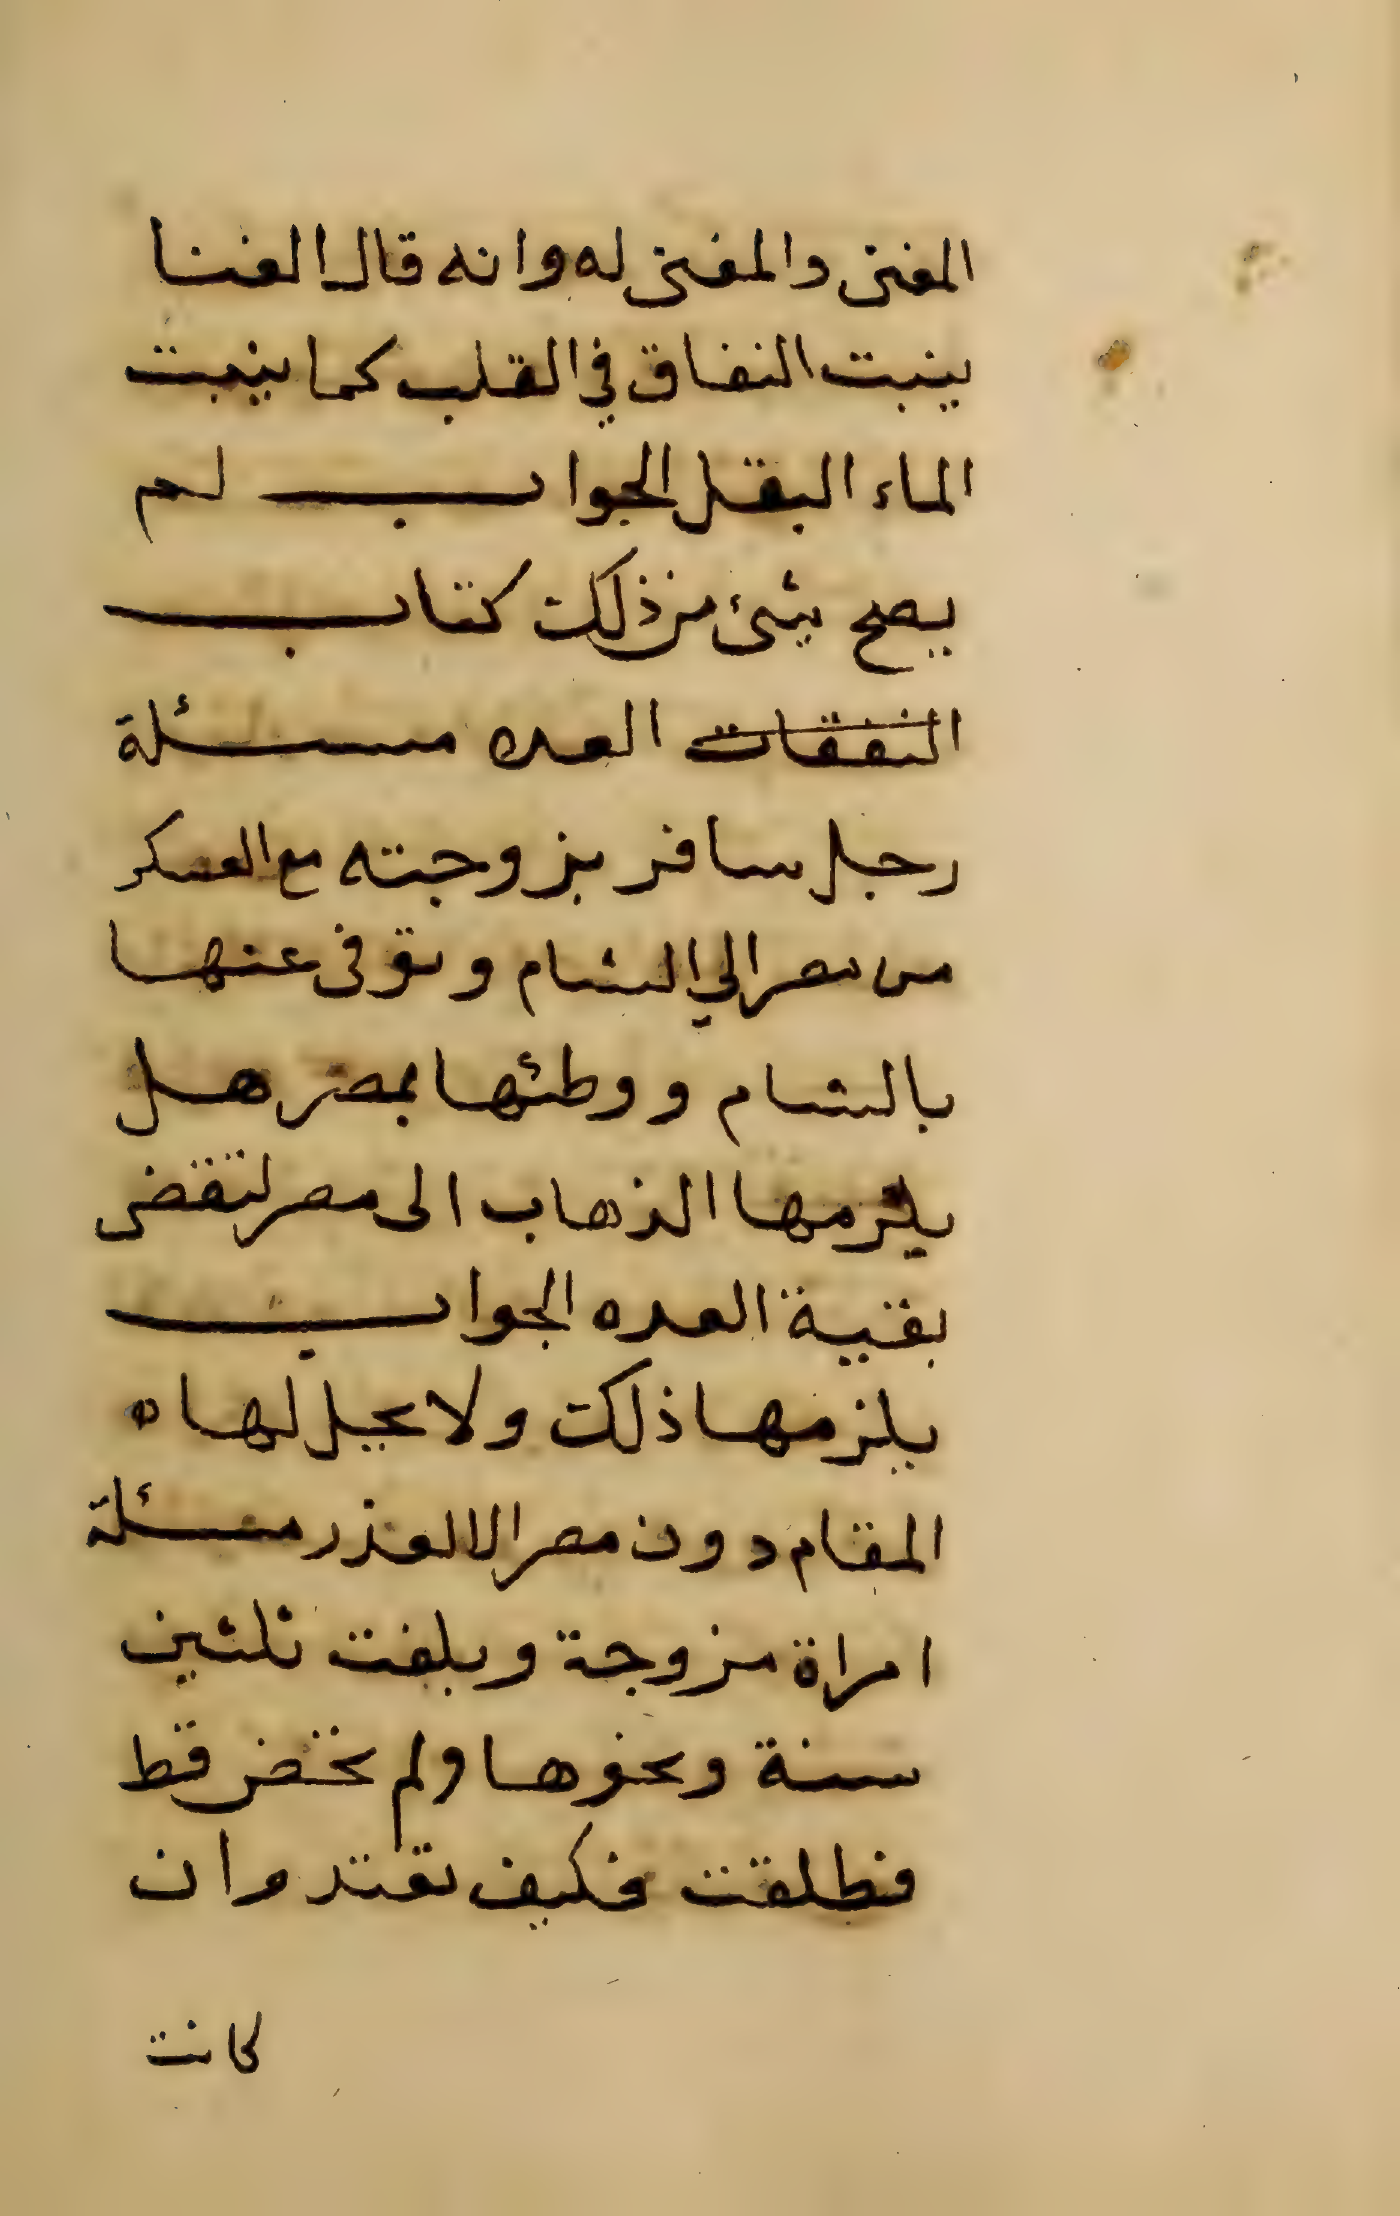 المغنى والمغنى له وانه قال الغنا
ينبت النفاق في القلب كما ينبت
الماء البقل الجواب لم
يصح شئ من ذلك كتاب
النفقات العده مسئلة
رجل سافر بزوجته مع العسكر
من مصر الي الشام وتوفى عنها
بالشام ووطئها بمصر هل
يلزمها الذهاب الى مصر لتقضى
بقية العده الجواب
يلزمها ذلك ولا يحل لها
المقام دون مصر الا لعذر مسئلة
امراة مزوجة وبلغت ثلثين
سنة ونحوها ولم تحض قط
فطلقت فكيف تعتد وان
كانت